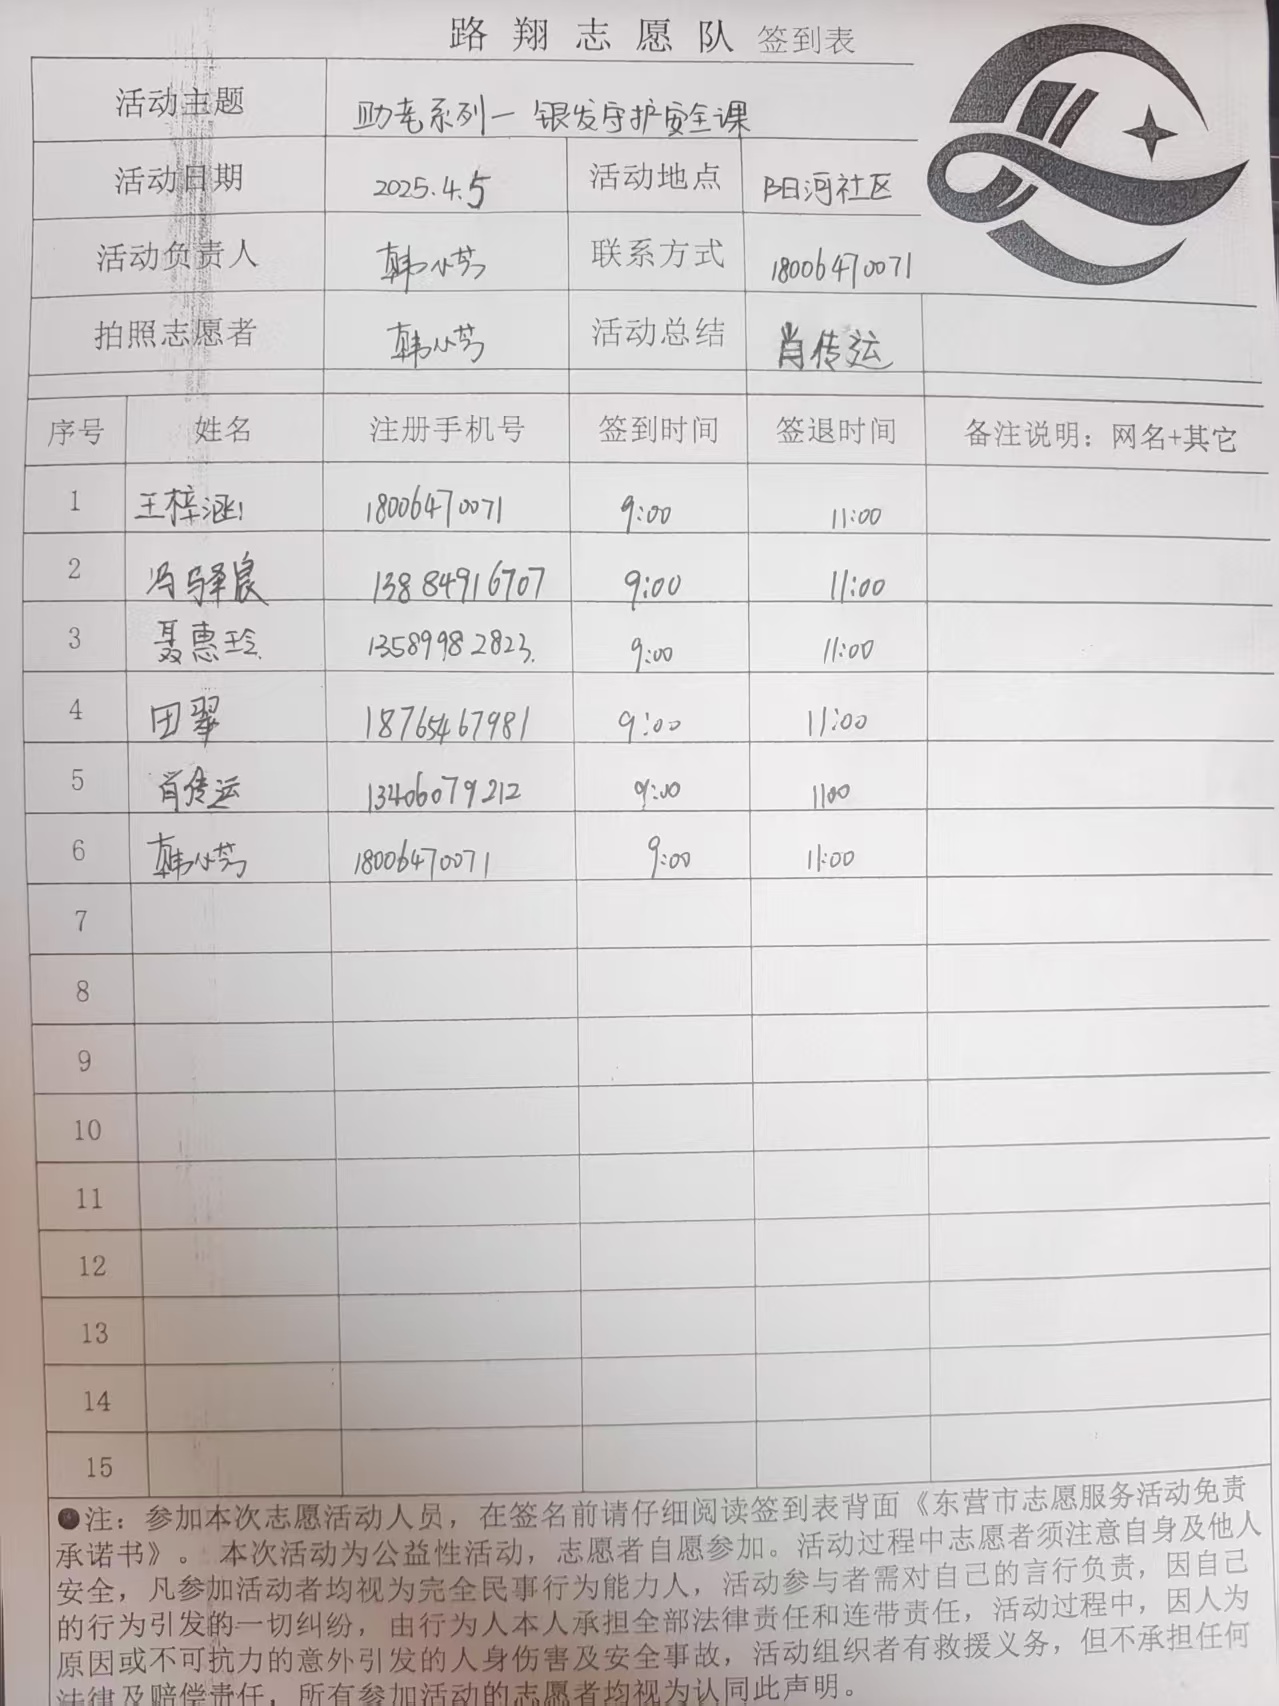 路翔志愿队 签到表
活动主题 助老系列一 银发守护安全课
活动日期 2025.4.5 活动地点 阳河社区
活动负责人 韩小芳 联系方式 18006470071
拍照志愿者 韩小芳 活动总结 肖传运
序号 姓名 注册手机号 签到时间 签退时间 备注说明：网名+其它
1 王梓涵 18006470071 9:00 11:00
2 冯驿良 13884916707 9:00 11:00
3 聂惠玲 13589982823 9:00 11:00
4 田翠 18765467981 9:00 11:00
5 肖传运 13406079212 9:00 1100
6 韩小芳 18006470071 9:00 11:00
7
8
9
10
11
12
13
14
15
●注：参加本次志愿活动人员，在签名前请仔细阅读签到表背面《东营市志愿服务活动免责
承诺书》。 本次活动为公益性活动，志愿者自愿参加。活动过程中志愿者须注意自身及他人
安全，凡参加活动者均视为完全民事行为能力人，活动参与者需对自己的言行负责，因自己
的行为引发的一切纠纷，由行为人本人承担全部法律责任和连带责任，活动过程中，因人为
原因或不可抗力的意外引发的人身伤害及安全事故，活动组织者有救援义务，但不承担任何
法律及赔偿责任，所有参加活动的志愿者均视为认同此声明。